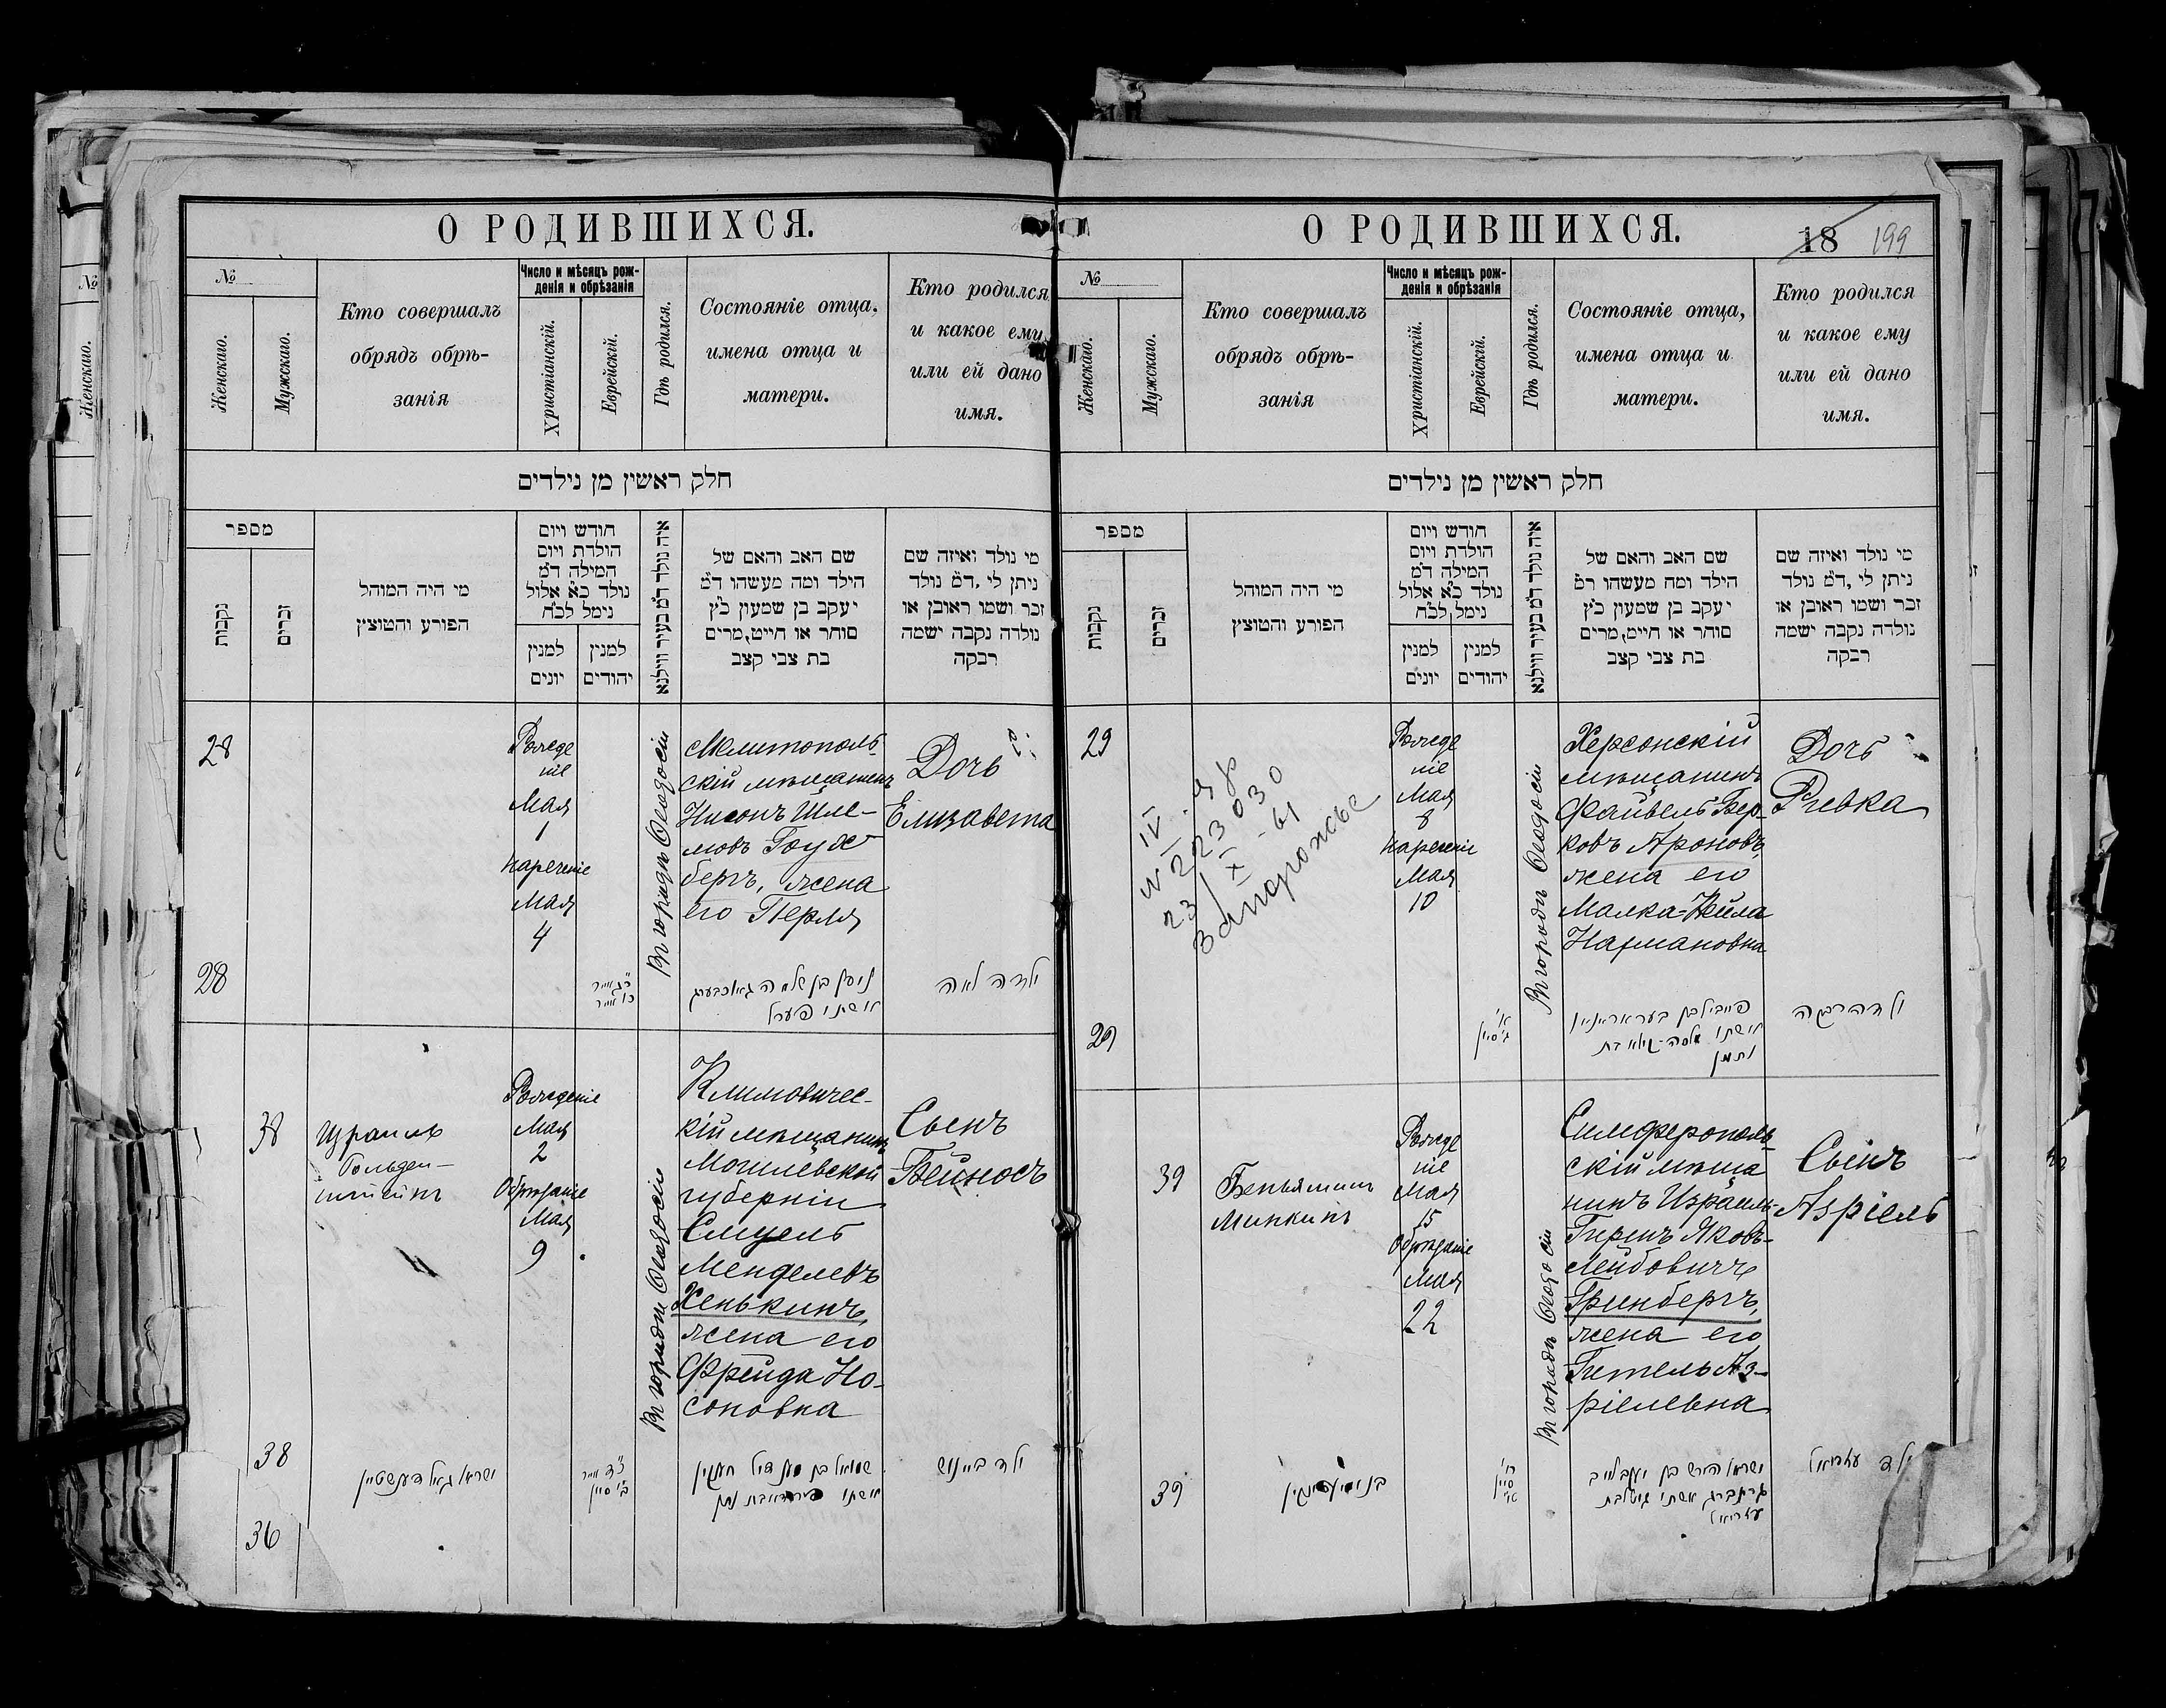 О РОДИВШИХСЯ.
№
Женскаго.
Мужскаго.
Кто совершалъ
обрядъ обрѣ-
занія
Число и мѣсяцъ рож-
денія и обрѣзанія
Христіанскій.
Еврейскій.
Гдѣ родился.
Состояніе отца,
имена отца и
матери.
Кто родился
и какое ему
или ей дано
имя.
חלק ראשין מן נילדים
מספר
נקבות
זכרים
מי היה המוהל
הפורע והמוצץ
חודש ויום
הולדת ויום
המילה ד״מ
נולד כ״א אלול
נימל לכ״ח
למנין
יונים
למנין
יהודים
איה נולד ד״מ בעיר ווילנא
שם האב והאם של
הילד ומה מעשהו ד״מ
יעקב בן שמעון כ״ץ
סוחר או חייט, מרים
בת צבי קצב
מי נולד ואיזה שם
ניתן לי, ד״מ נולד
זכר ושמו ראובן או
נולדה נקבה ישמה
רבקה
28
Рожде
ніе
Мая
1
нареченіе
Мая
4
Въ городѣ Ѳеодосіи
Мелитополь-
скій мѣщанинъ
Нисонъ Шле-
мовъ Гаух-
бергъ, жена
его Перля
Дочь
Елизавета
28
אשתו פערל
ילדה לאה
38
Израиль
Гольден-
штейнъ
Рожденіе
Мая
2
Обрѣзаніе
Мая
9
Въ городѣ Ѳеодосіи
Климовичес-
кій мѣщанинъ
Могилевской
губерніи
Смуель
Менделевъ
Хенькинъ,
жена его
Фрейда Но-
соновна
Сынъ
Бейносъ
38
ישראל גאלדענשטיין
ילד ביינוש
36
О РОДИВШИХСЯ.
18 199
№
Женскаго.
Мужскаго.
Кто совершалъ
обрядъ обрѣ-
занія
Число и мѣсяцъ рож-
денія и обрѣзанія
Христіанскій.
Еврейскій.
Гдѣ родился.
Состояніе отца,
имена отца и
матери.
Кто родился
и какое ему
или ей дано
имя.
חלק ראשין מן נילדים
מספר
נקבות
זכרים
מי היה המוהל
הפורע והמוצץ
חודש ויום
הולדת ויום
המילה ד״מ
נולד כ״א אלול
נימל לכ״ח
למנין
יונים
למנין
יהודים
איה נולד ד״מ בעיר ווילנא
שם האב והאם של
הילד ומה מעשהו ד״מ
יעקב בן שמעון כ״ץ
סוחר או חייט, מרים
בת צבי קצב
מי נולד ואיזה שם
ניתן לי, ד״מ נולד
זכר ושמו ראובן או
נולדה נקבה ישמה
רבקה
29
IV
№ 223030
23/X-61
Запорожье
Рожде
ніе
Мая
8
нареченіе
Мая
10
Въ городѣ Ѳеодосіи
Херсонскій
мѣщанинъ
Файвель Бер-
ковъ Ароновъ,
жена его
Малка-Кейла
Нахмановна
Дочь
Ривка
29
ילדה רבקה
39
Беньяминъ
Минкинъ
Рожде
ніе
Мая
15
Обрѣзаніе
Мая
22
Въ городѣ Ѳеодосіи
Симферополь-
скій мѣща
нинъ Израиль-
Гиршъ Яковъ-
Лейбовичъ
Гринбергъ,
жена его
Гитель Аз-
ріелевна
Сынъ
Азріель
39
ילד עזריאל